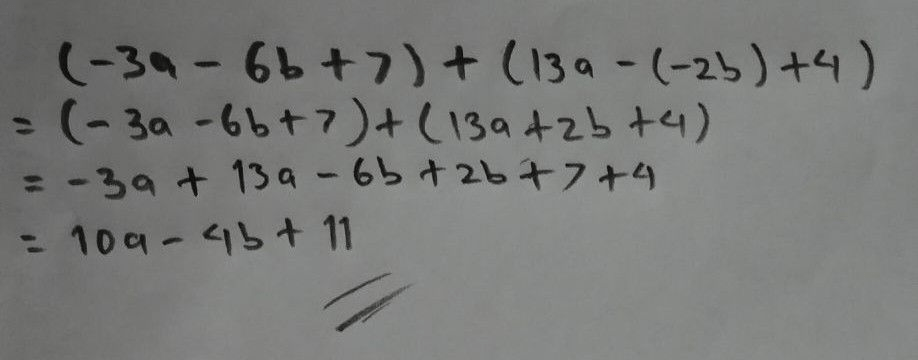 (-3a - 6b + 7) + (13a - (-2b) + 4)
= (-3a - 6b + 7) + (13a + 2b + 4)
= -3a + 13a - 6b + 2b + 7 + 4
= 10a - 4b + 11